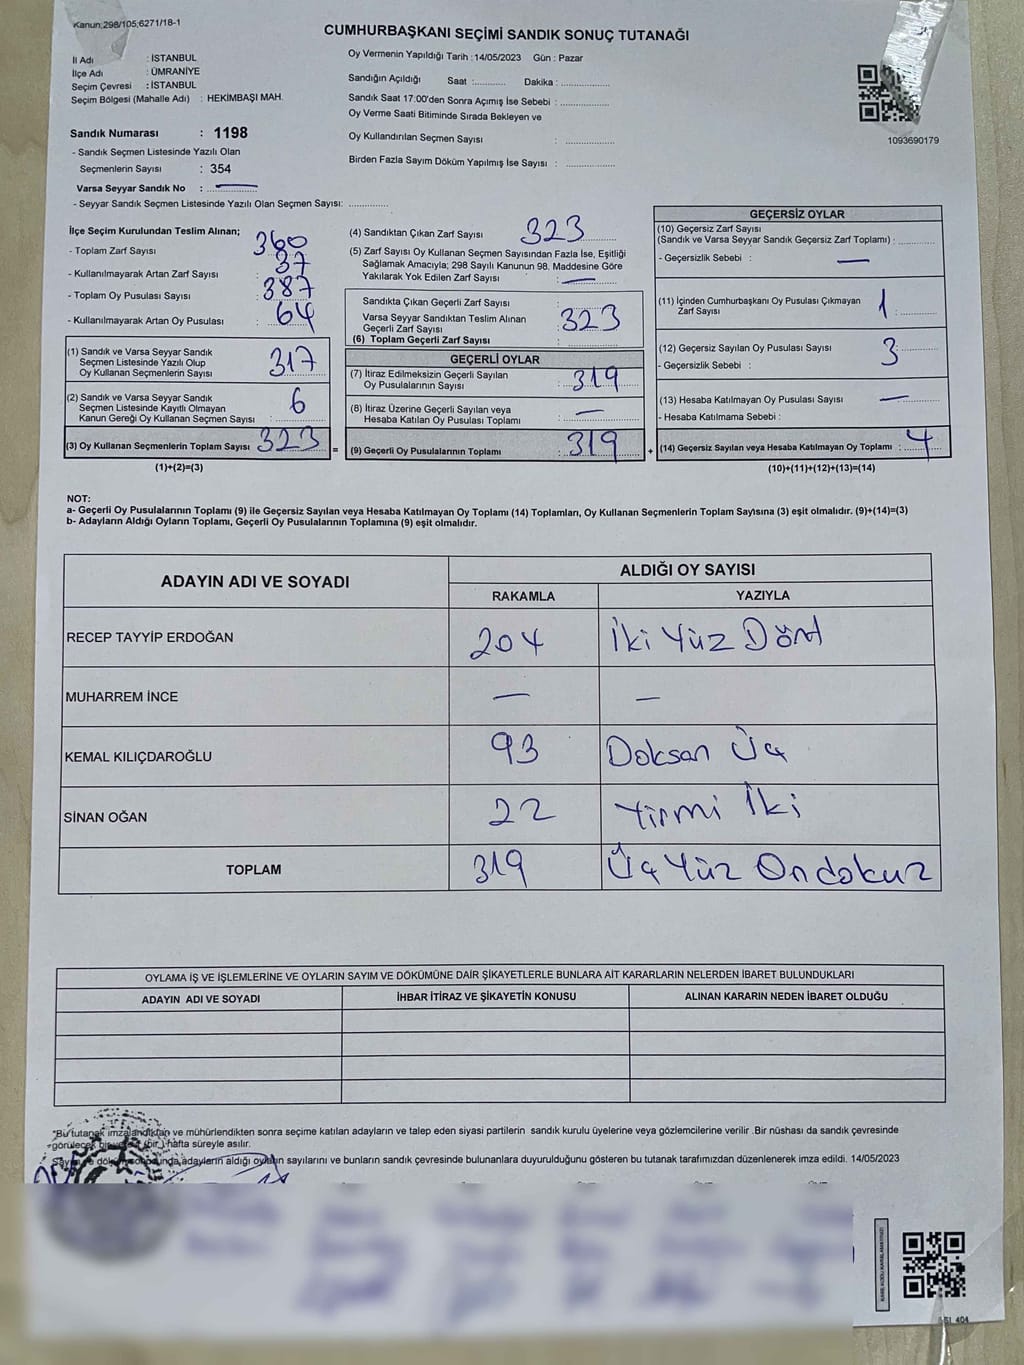 Kanun;298/105;6271/18-1
CUMHURBAŞKANI SEÇİMİ SANDIK SONUÇ TUTANAĞI
İl Adı : İSTANBUL
İlçe Adı : ÜMRANİYE
Seçim Çevresi : İSTANBUL
Seçim Bölgesi (Mahalle Adı) : HEKİMBAŞI MAH.
Sandık Numarası : 1198
- Sandık Seçmen Listesinde Yazılı Olan
Seçmenlerin Sayısı : 354
Varsa Seyyar Sandık No : —
- Seyyar Sandık Seçmen Listesinde Yazılı Olan Seçmen Sayısı: ..............
Oy Vermenin Yapıldığı Tarih : 14/05/2023 Gün : Pazar
Sandığın Açıldığı Saat :............ Dakika : .................
Sandık Saat 17:00'den Sonra Açımış İse Sebebi : .................
Oy Verme Saati Bitiminde Sırada Bekleyen ve
Oy Kullandırılan Seçmen Sayısı : .................
Birden Fazla Sayım Döküm Yapılmış İse Sayısı : .................
1093690179
İlçe Seçim Kurulundan Teslim Alınan;
- Toplam Zarf Sayısı : 360
- Kullanılmayarak Artan Zarf Sayısı : 37
- Toplam Oy Pusulası Sayısı : 387
- Kullanılmayarak Artan Oy Pusulası : 64
(1) Sandık ve Varsa Seyyar Sandık
Seçmen Listesinde Yazılı Olup
Oy Kullanan Seçmenlerin Sayısı : 317
(2) Sandık ve Varsa Seyyar Sandık
Seçmen Listesinde Kayıtlı Olmayan
Kanun Gereği Oy Kullanan Seçmen Sayısı : 6
(3) Oy Kullanan Seçmenlerin Toplam Sayısı : 323 =
(1)+(2)=(3)
(4) Sandıktan Çıkan Zarf Sayısı : 323
(5) Zarf Sayısı Oy Kullanan Seçmen Sayısından Fazla İse, Eşitliği
Sağlamak Amacıyla; 298 Sayılı Kanunun 98. Maddesine Göre
Yakılarak Yok Edilen Zarf Sayısı : —
Sandıkta Çıkan Geçerli Zarf Sayısı :
Varsa Seyyar Sandıktan Teslim Alınan
Geçerli Zarf Sayısı : 323
(6) Toplam Geçerli Zarf Sayısı :
GEÇERLİ OYLAR
(7) İtiraz Edilmeksizin Geçerli Sayılan
Oy Pusulalarının Sayısı : 319
(8) İtiraz Üzerine Geçerli Sayılan veya
Hesaba Katılan Oy Pusulası Toplamı : —
(9) Geçerli Oy Pusulalarının Toplamı : 319 +
GEÇERSİZ OYLAR
(10) Geçersiz Zarf Sayısı
(Sandık ve Varsa Seyyar Sandık Geçersiz Zarf Toplamı) : ............
- Geçersizlik Sebebi : —
(11) İçinden Cumhurbaşkanı Oy Pusulası Çıkmayan
Zarf Sayısı : 1
(12) Geçersiz Sayılan Oy Pusulası Sayısı : 3
- Geçersizlik Sebebi :
(13) Hesaba Katılmayan Oy Pusulası Sayısı : —
- Hesaba Katılmama Sebebi :
(14) Geçersiz Sayılan veya Hesaba Katılmayan Oy Toplamı : 4
(10)+(11)+(12)+(13)=(14)
NOT:
a- Geçerli Oy Pusulalarının Toplamı (9) ile Geçersiz Sayılan veya Hesaba Katılmayan Oy Toplamı (14) Toplamları, Oy Kullanan Seçmenlerin Toplam Sayısına (3) eşit olmalıdır. (9)+(14)=(3)
b- Adayların Aldığı Oyların Toplamı, Geçerli Oy Pusulalarının Toplamına (9) eşit olmalıdır.
ADAYIN ADI VE SOYADI ALDIĞI OY SAYISI
RAKAMLA YAZIYLA
RECEP TAYYİP ERDOĞAN 204 İki Yüz Dört
MUHARREM İNCE — —
KEMAL KILIÇDAROĞLU 93 Doksan Üç
SİNAN OĞAN 22 Yirmi İki
TOPLAM 319 Üç Yüz Ondokuz
OYLAMA İŞ VE İŞLEMLERİNE VE OYLARIN SAYIM VE DÖKÜMÜNE DAİR ŞİKAYETLERLE BUNLARA AİT KARARLARIN NELERDEN İBARET BULUNDUKLARI
ADAYIN ADI VE SOYADI İHBAR İTİRAZ VE ŞİKAYETİN KONUSU ALINAN KARARIN NEDEN İBARET OLDUĞU
"Bu tutanak imzalandıktan ve mühürlendikten sonra seçime katılan adayların ve talep eden siyasi partilerin sandık kurulu üyelerine veya gözlemcilerine verilir .Bir nüshası da sandık çevresinde
görülecek bir yere (bir) hafta süreyle asılır.
Sayım ve döküm sonunda,adayların aldığı oyların sayılarını ve bunların sandık çevresinde bulunanlara duyurulduğunu gösteren bu tutanak tarafımızdan düzenlenerek imza edildi. 14/05/2023